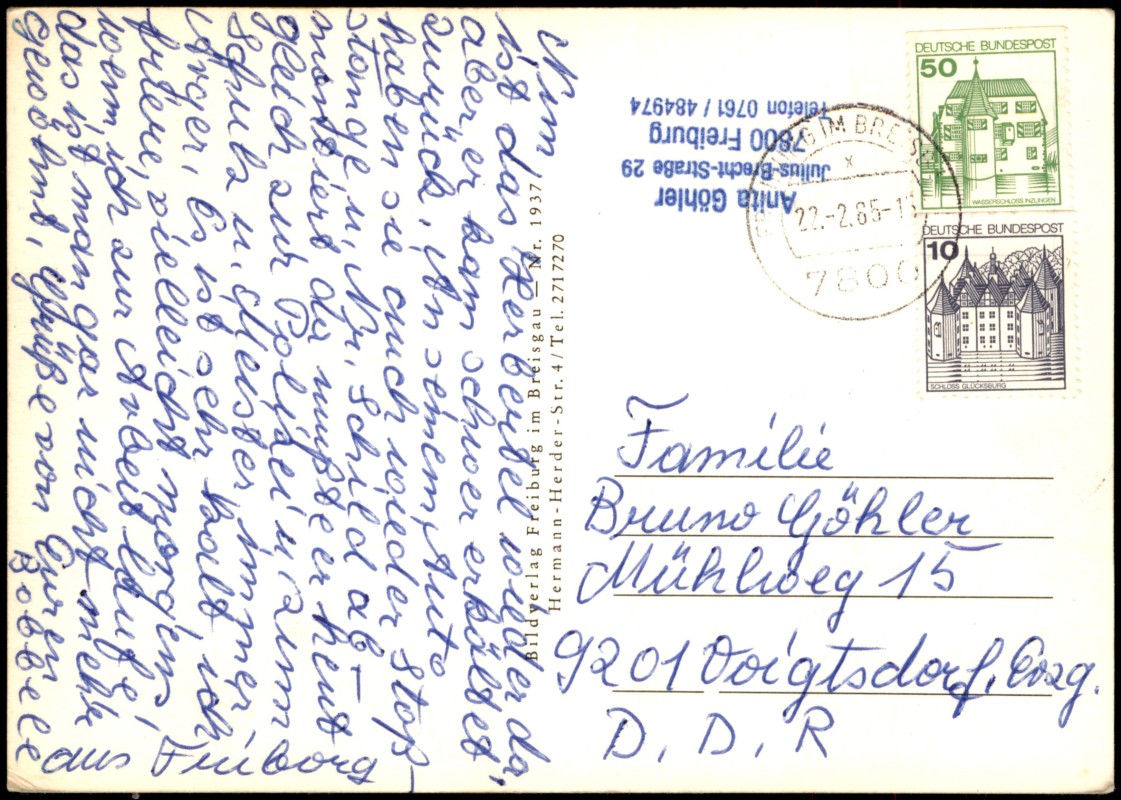 Nun
ist das Herbertel wieder da,
aber er kam schwer erkältet
zurück, An seinem Auto
haben sie auch wieder Stoß-
stange u, Nr, Schild ab-
montiert da mußte er heut
gleich zur Polizei u zum
Schulz u. Meister immer
Ärger, Es ist sehr kalt, ich
friere, vielleicht morgens,
wenn ich zur Arbeit laufe,
das ist man gar nicht mehr
gewöhnt, Grüße von Eurer
Bobbele
aus Freiburg
Bildverlag Freiburg im Breisgau — Nr. 1937
Hermann-Herder-Str. 4 / Tel. 2717270
Anita Göhler
Julius-Brecht-Straße 29
7800 Freiburg
Telefon 0761 / 484974
IM BREIS
22.-2.85-1
7800
DEUTSCHE BUNDESPOST
50
WASSERSCHLOSS INZLINGEN
DEUTSCHE BUNDESPOST
10
SCHLOSS GLÜCKSBURG
Familie
Bruno Göhler
Mühlweg 15
9201 Voigtsdorf, Erzg.
D. D. R